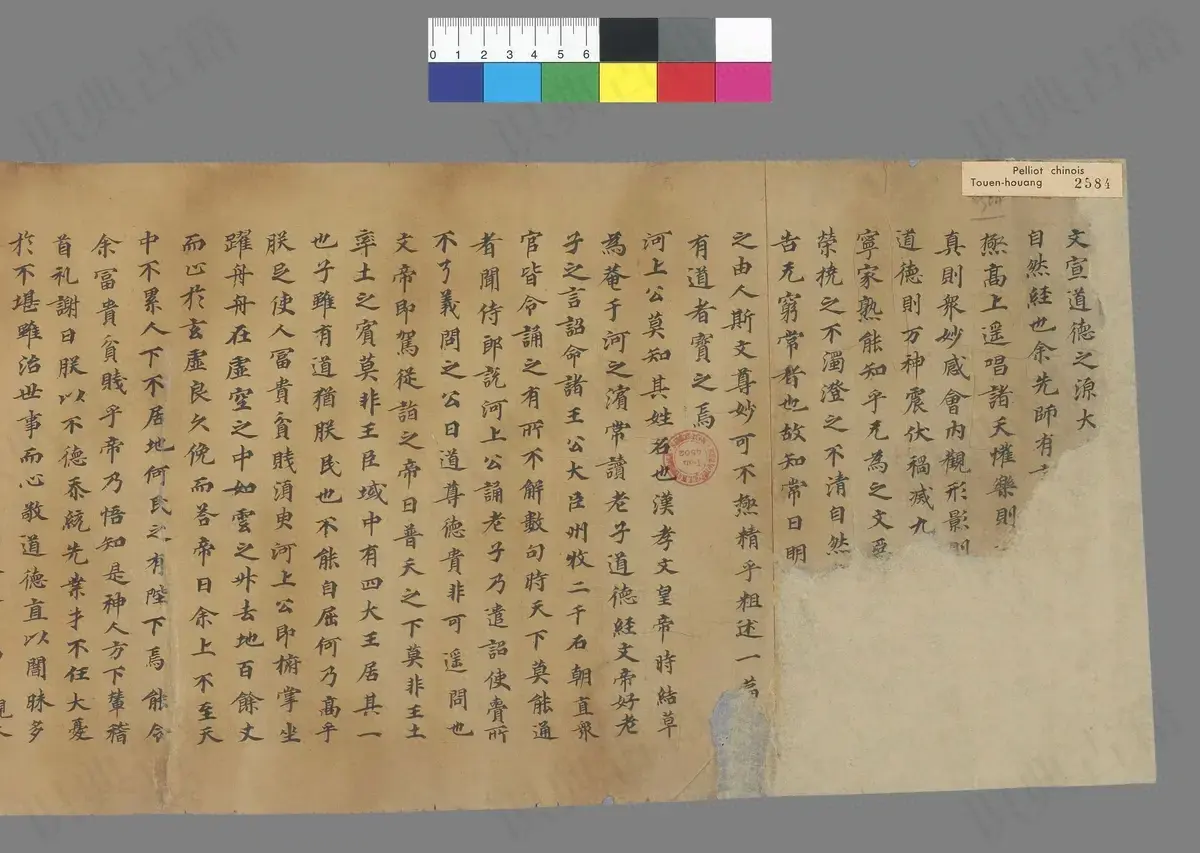 Pelliot chinois
Touen-houang 2584
0 1 2 3 4 5 6
文宣道德之源大
自然経也余先師有
極高上遥唱諸天懽樂則
真則衆妙感會內觀形影則
道德則万神震伏禍滅九
寧家熟能知乎无為之文
榮撓之不濁澄之不清自然
吉无窮常者也故知常曰明
之由人斯文尊妙可不極精乎粗述一
有道者寳之焉
河上公莫知其姓名也漢孝文皇帝時結草
為菴于河之濱常讀老子道德経文帝好老
子之言詔命諸王公大臣州牧二千石朝直衆
官皆令誦之有所不解數句時天下莫能通
者聞侍郎説河上公誦老子乃遣詔使賷所
不了義問之公曰道尊德貴非可遥問也
文帝即駕從詣之帝曰普天之下莫非王土
率土之賓莫非王臣域中有四大王居其一
也子雖有道猶朕民也不能自屈何乃高乎
朕足使人冨貴貧賎湏臾河上公即拊掌坐
躍冉冉在虛空之中如雲之升去地百餘丈
而止於玄虛良久俛而荅帝曰余上不至天
中不累人下不居地何民之有陛下焉能令
余冨貴貧賎乎帝乃悟知是神人方下輦稽
首礼謝曰朕以不德忝統先業才不任大憂
於不堪雖治世事而心敬道德直以闇昧多